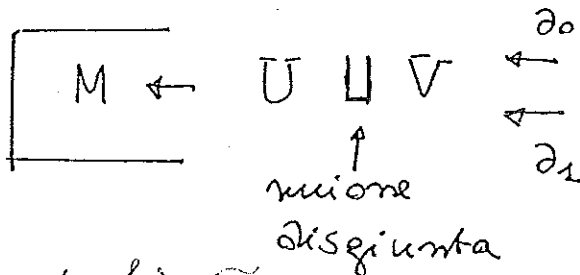 ∂₀
M ← U ⊔ V ←
←
∂₁
↑
unione
disgiunta